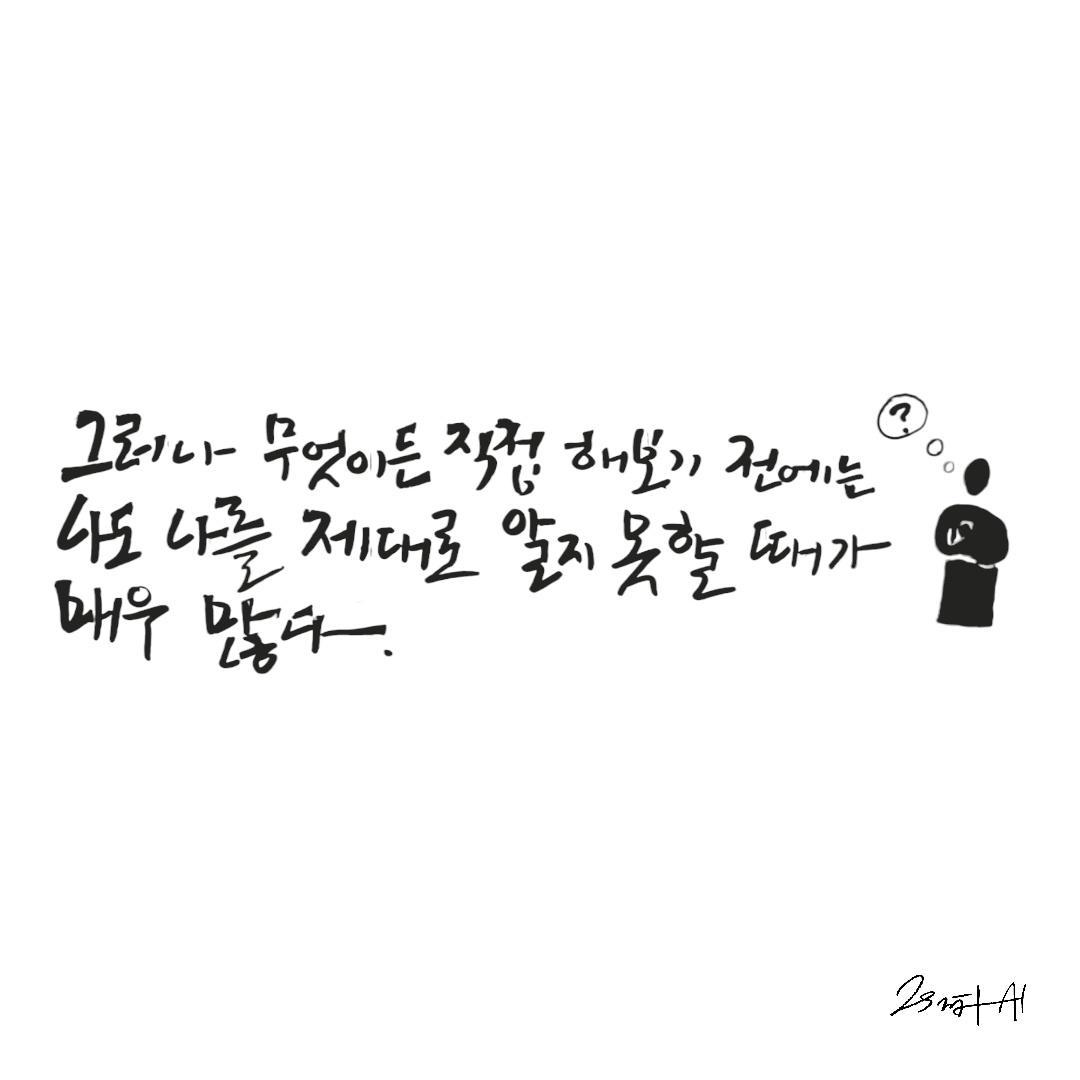 그러나 무엇이든 직접 해보기 전에는
나도 나를 제대로 알지 못할 때가
매우 많다.
?